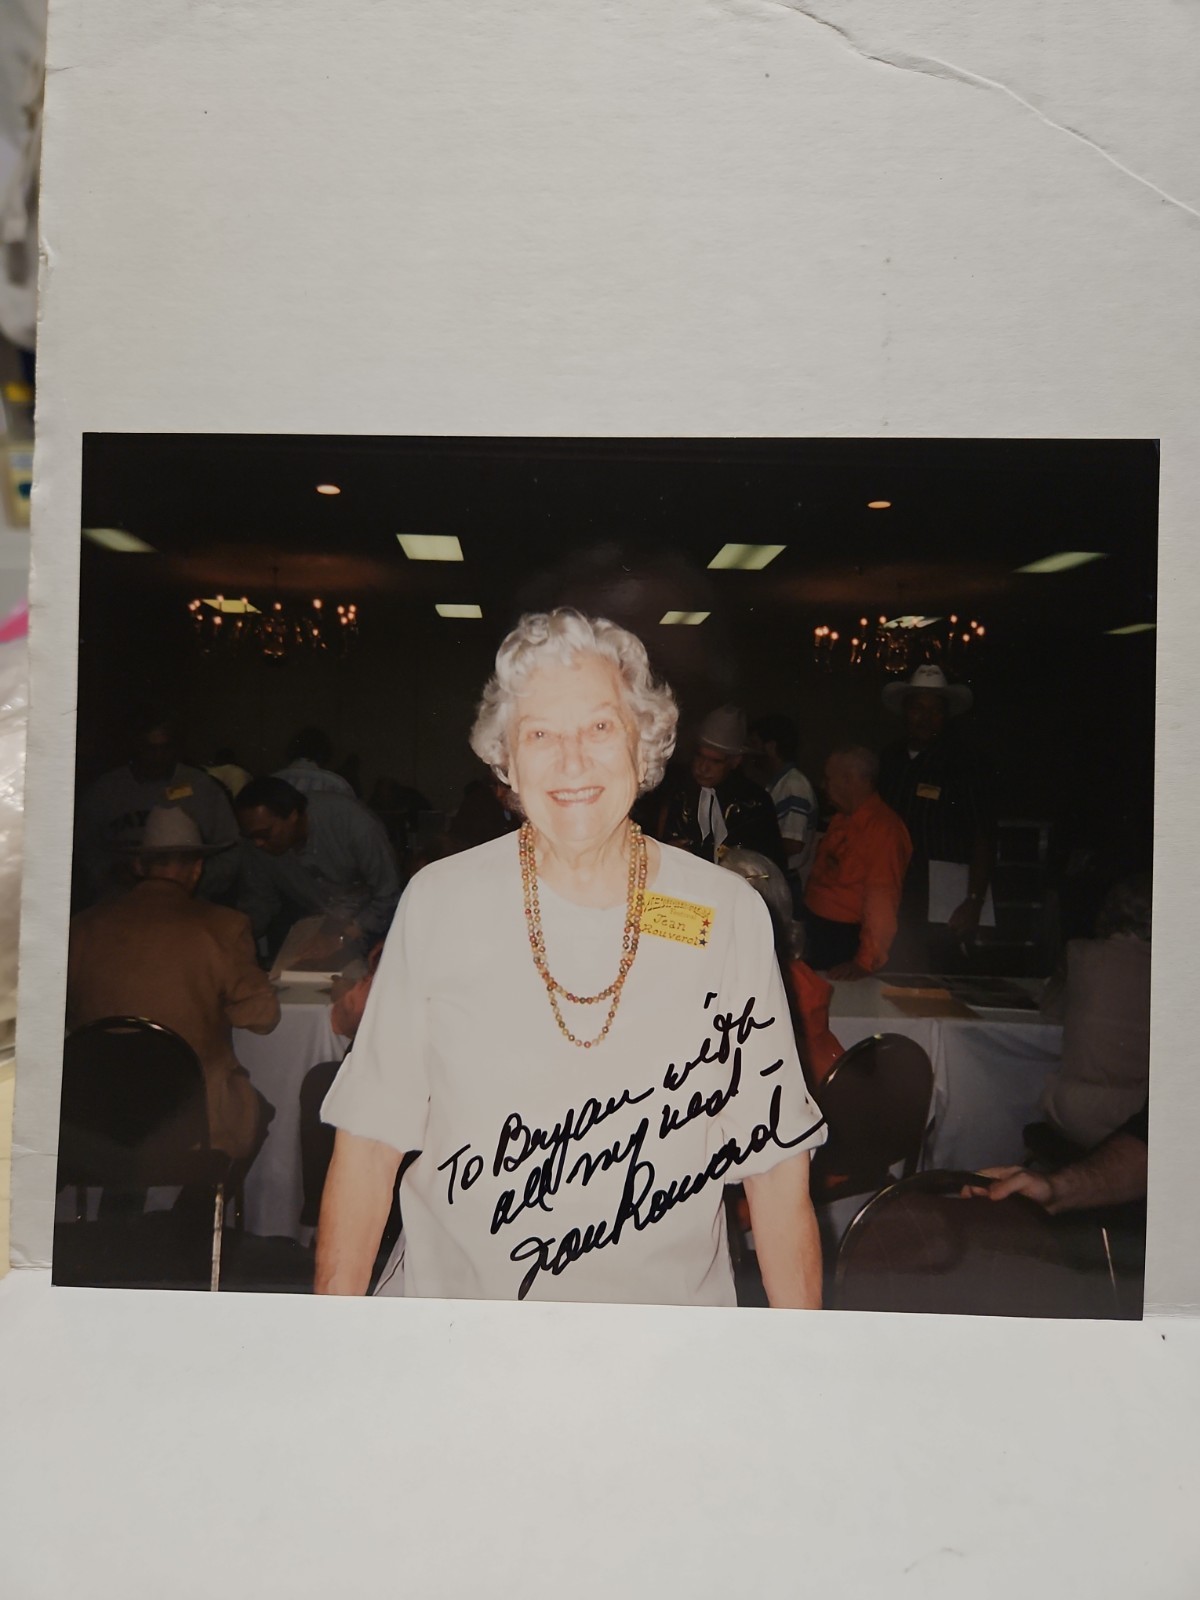 Jean
Rouverol
To Bryan with
all my best -
Jean Rouverol